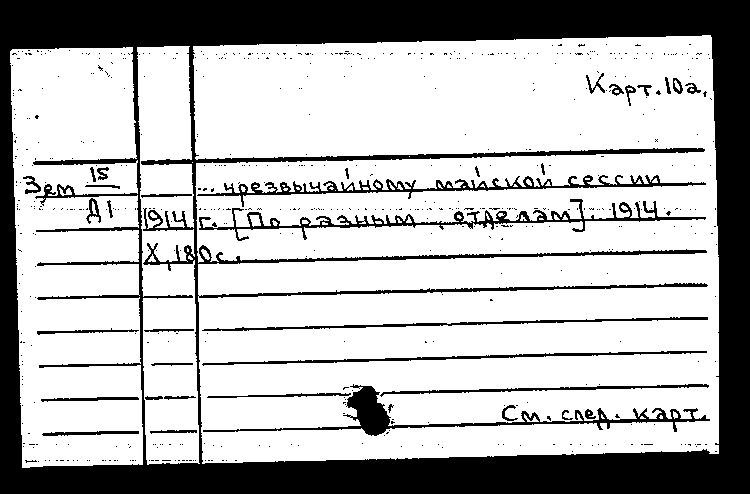 Карт. 10а.
Зем 15/Д1
... чрезвычайному майской сессии
1914 г. [По разным отделам]. 1914.
X, 180с.
См. след. карт.